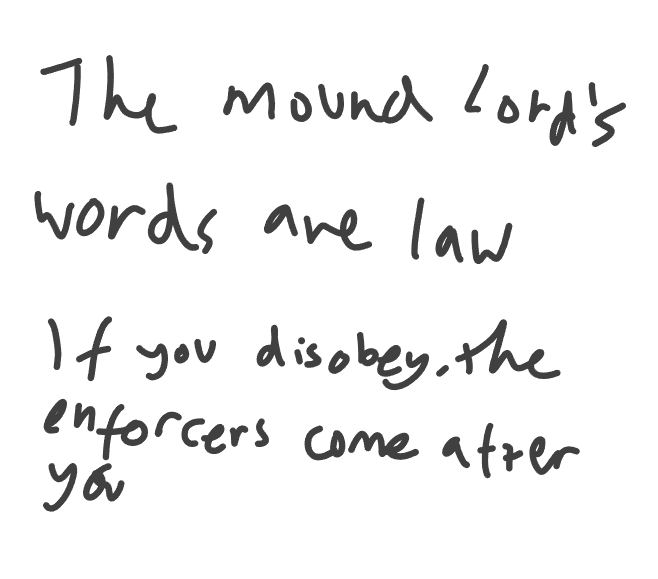 The mound Lord's
words are law
If you disobey, the
enforcers come after
you